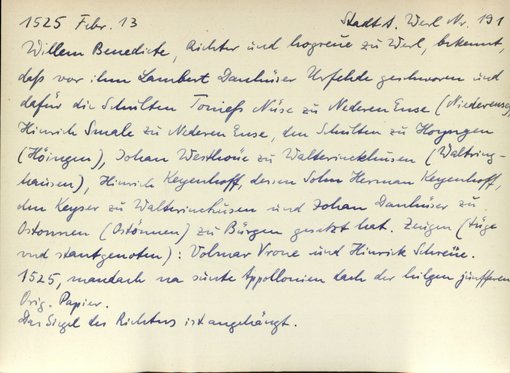 1525 Febr. 13 Stadt A. Werl Nr. 191
Willem Benedicte, Richter und hogreue zu Werl, bekennt,
daß vor ihm Lambert Danhüser Urfehde geschworen und
dafür die Schulten Tonieß Nüse zu Nederen Ense (Niederense),
Hinrich Smale zu Nederen Ense, den Schulten zu Hoyngen
(Höingen), Johan Westhoue zu Walterinckhusen (Waltring-
hausen), Hinrich Keyenhoff, dessen Sohn Herman Keyenhoff,
den Keyser zu Walterinchusen und Johan Danhüser zu
Ostonnen (Ostönnen) zu Bürgen gesetzt hat. Zeugen (tüge
und stantgenoten): Volmar Vrone und Hinrick Schreue.
1525, mandach na sunte Appollonien dach der hilgen junfferen
Orig. Papier.
Das Siegel des Richters ist angehängt.